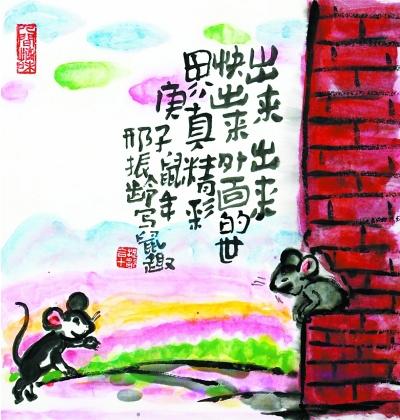 出来 出来
快出来外面的世
界真精彩
庚子鼠年
邢振龄写鼠趣
人間情味